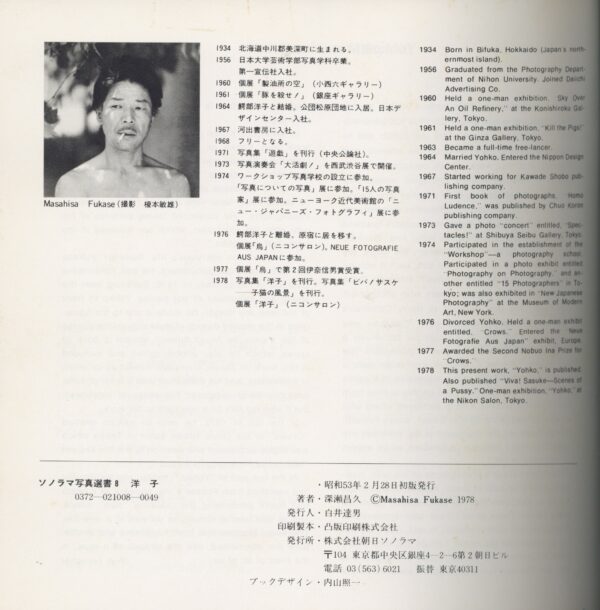 1934 北海道中川郡美深町に生まれる。
1956 日本大学芸術学部写真学科卒業。
第一宣伝社入社。
1960 個展「製油所の空」(小西六ギャラリー)
1961 個展「豚を殺せ!」(銀座ギャラリー)
1964 鰐部洋子と結婚。公団松原団地に入居。日本デ
ザインセンター入社。
1967 河出書房に入社。
1968 フリーとなる。
1971 写真集「遊戯」を刊行(中央公論社)。
1973 写真演奏会「大活劇!」を西武渋谷展で開催。
1974 ワークショップ写真学校の設立に参加。
「写真についての写真」展に参加。「15人の写真
家」展に参加。ニューヨーク近代美術館の「ニ
ュー・ジャパニーズ・フォトグラフィ」展に参
加。
1976 鰐部洋子と離婚、原宿に居を移す。
個展「烏」(ニコンサロン)。NEUE FOTOGRAFIE
AUS JAPANに参加。
1977 個展「烏」で第2回伊奈信男賞受賞。
1978 写真集「洋子」を刊行。写真集「ビバ!サスケ
子猫の風景」を刊行。
個展「洋子」(ニコンサロン)
Masahisa Fukase(撮影 榎本敏雄)
1934 Born in Bifuka, Hokkaido (Japan's north-
ernmost island).
1956 Graduated from the Photography Depart-
ment of Nihon University. Joined Daiichi
Advertising Co.
1960 Held a one-man exhibition, "Sky Over
An Oil Refinery," at the Konishiroku Gal-
lery, Tokyo.
1961 Held a one-man exhibition, "Kill the Pigs!"
at the Ginza Gallery, Tokyo.
1963 Became a full-time free-lancer.
1964 Married Yohko. Entered the Nippon Design
Center.
1967 Started working for Kawade Shobo pub-
lishing company.
1971 First book of photographs, "Homo
Ludence," was published by Chuo Koron
publishing company.
1973 Gave a photo "concert" entitled, "Spec-
tacles!" at Shibuya Seibu Gallery, Tokyo.
1974 Participated in the establishment of the
"Workshop"—a photography school.
Participated in a photo exhibit entitled,
"Photography on Photography," and an-
other entitled "15 Photographers" in To-
kyo; was also exhibited in "New Japanese
Photography" at the Museum of Modern
Art, New York.
1976 Divorced Yohko. Held a one-man exhibit
entitled, "Crows." Entered the "Neue
Fotografie Aus Japan" exhibit, Europe.
1977 Awarded the Second Nobuo Ina Prize for
"Crows."
1978 This present work, "Yohko," is published.
Also published "Viva! Sasuke—Scenes of
a Pussy." One-man exhibition, "Yohko," at
the Nikon Salon, Tokyo.
ソノラマ写真選書8 洋 子
0372—021008—0049
・昭和53年2月28日初版発行
著者・深瀬昌久 ©Masahisa Fukase 1978
発行人・白井達男
印刷製本・凸版印刷株式会社
発行所・株式会社朝日ソノラマ
〒104 東京都中央区銀座4—2—6第2朝日ビル
電話 03(563)6021 振替 東京40311
ブックデザイン・内山照一